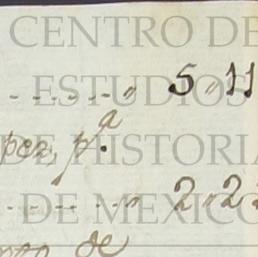 CENTRO DE
ESTUDIOS
DE HISTORIA
DE MEXICO
5 " 11
p.ª
2 " 22
de